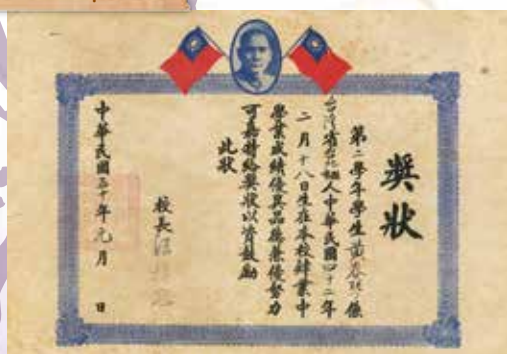 獎狀
第二學年學生黃春 係
台灣省台北縣人中華民國四十二年
二月十八日生在本校肄業中
學業成績優異品德兼優努力
可嘉特給獎狀以資鼓勵
此狀
校長
中華民國五十年元月 日